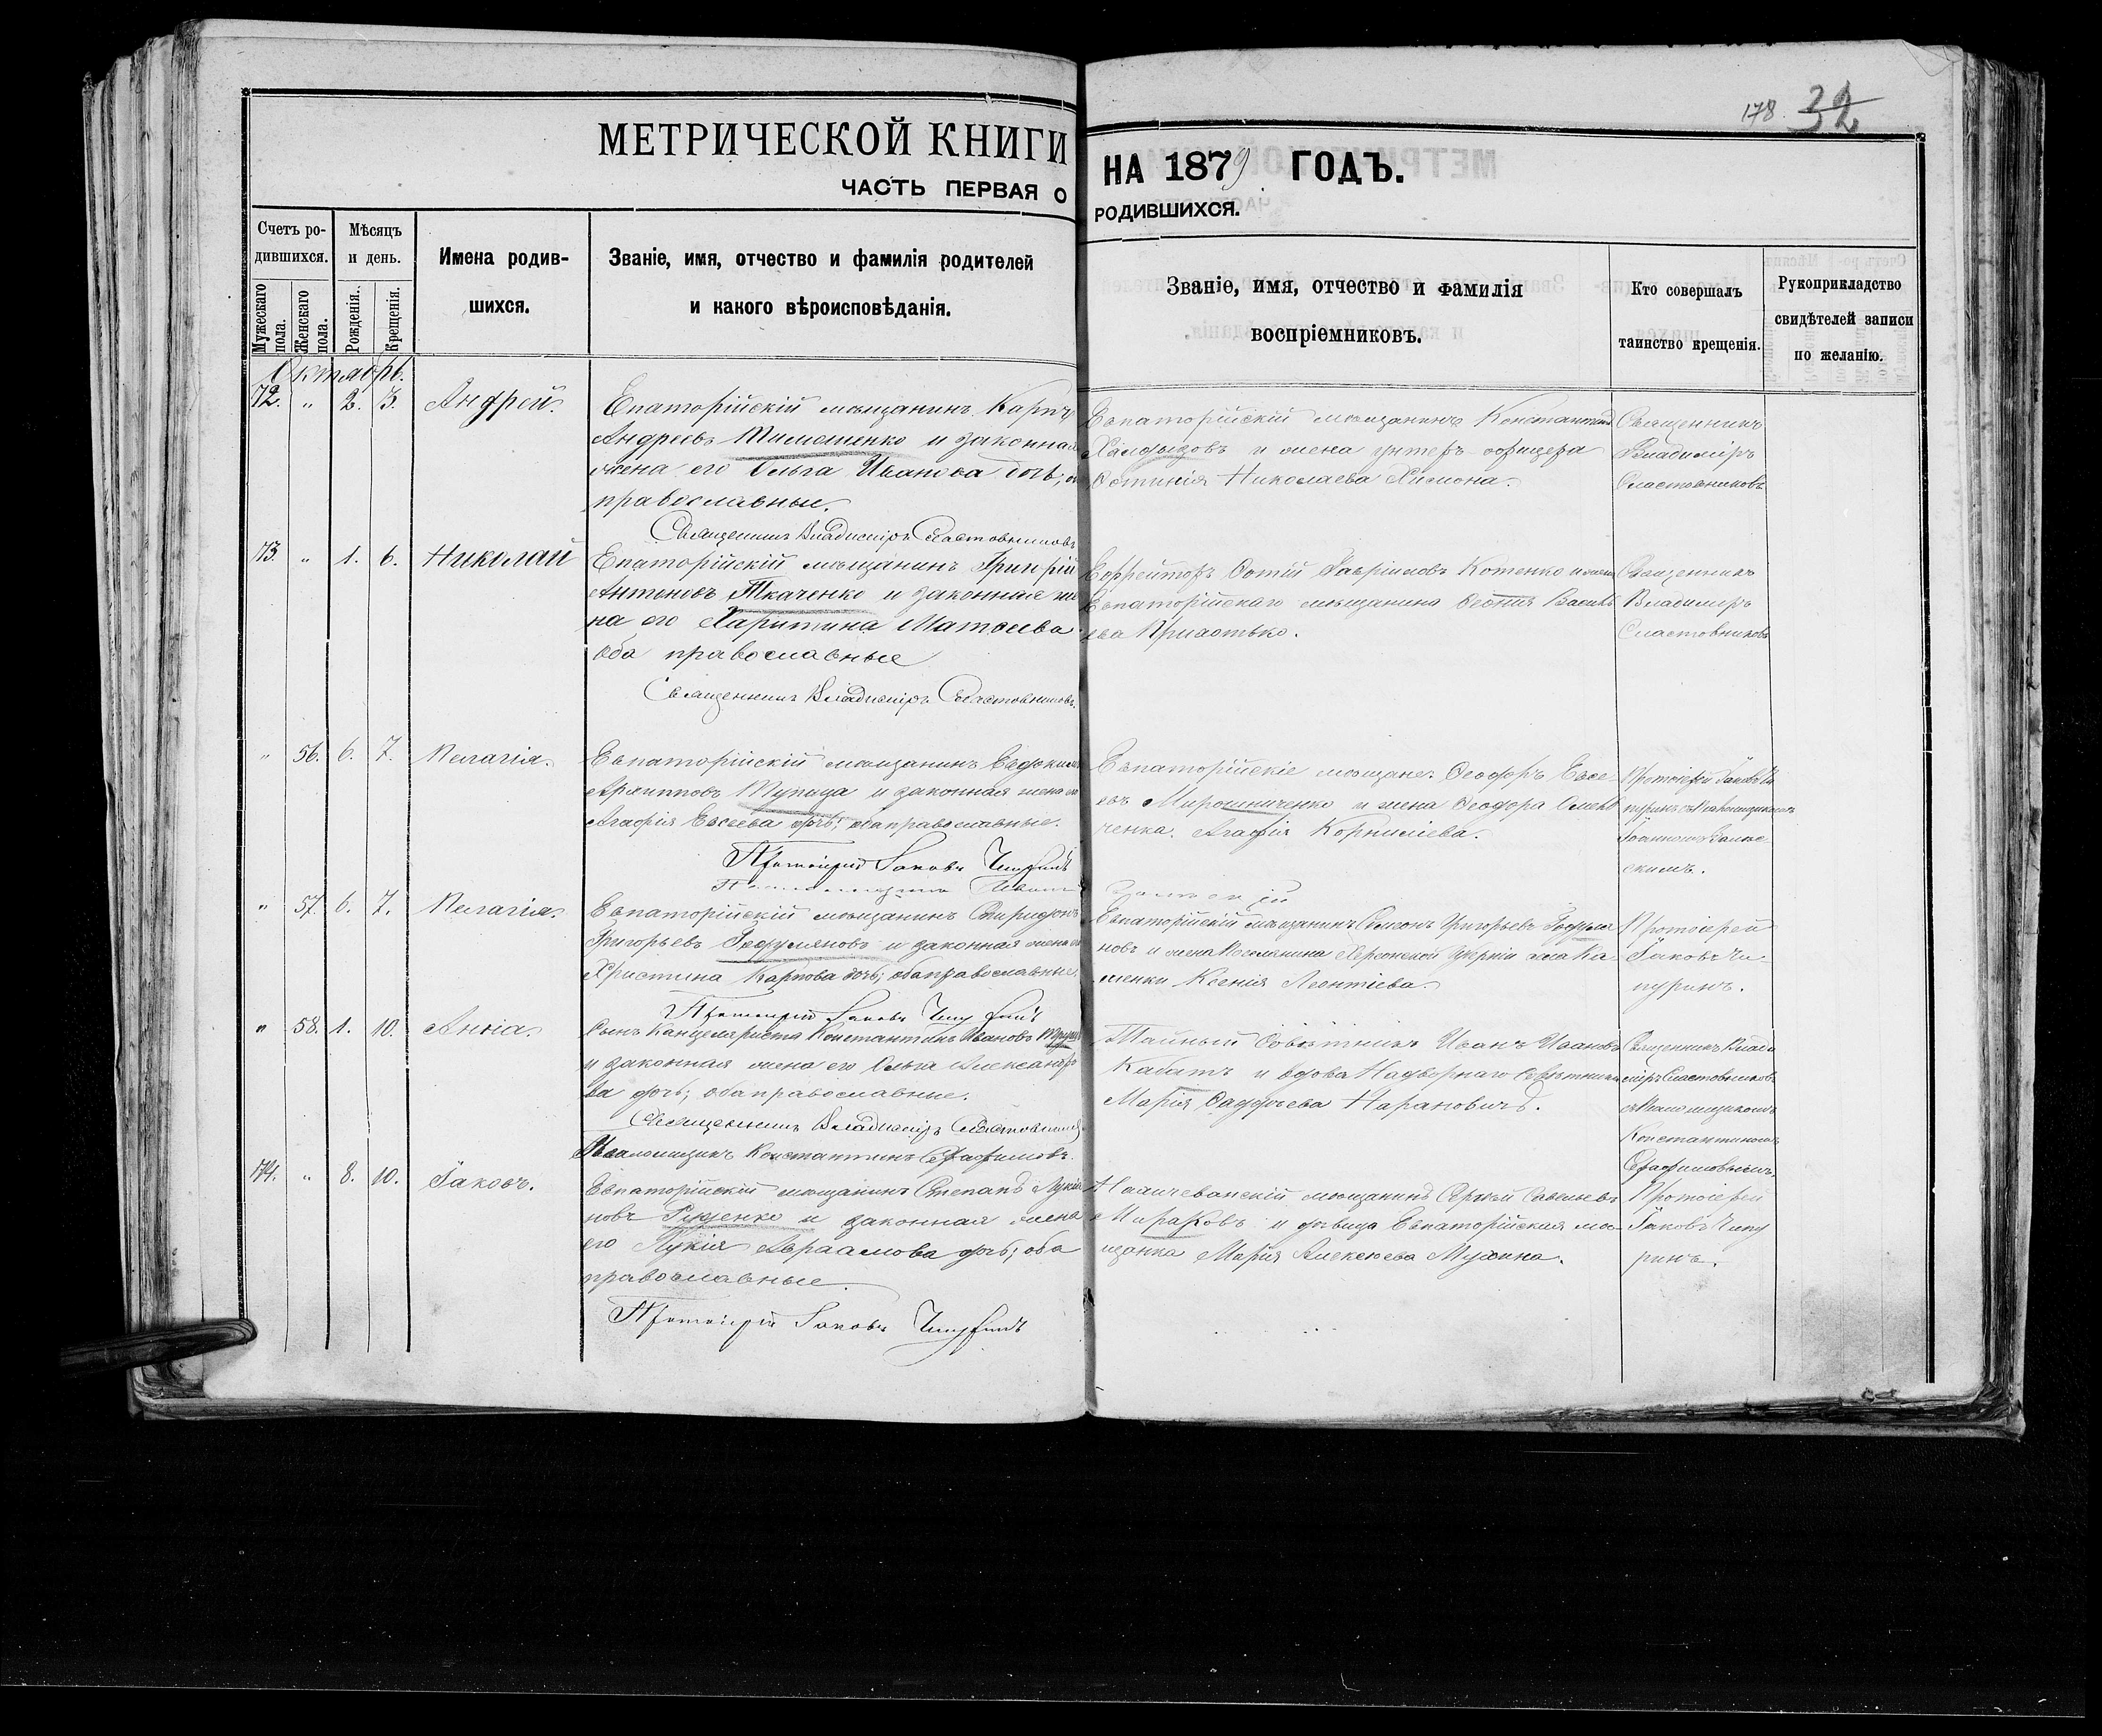 178. 32
МЕТРИЧЕСКОЙ КНИГИ НА 1879 ГОДЪ.
ЧАСТЬ ПЕРВАЯ О РОДИВШИХСЯ.
Счетъ ро-
дившихся.
Мужескаго пола.
Женскаго пола.
Мѣсяцъ
и день.
Рожденія.
Крещенія.
Имена родив-
шихся.
Званіе, имя, отчество и фамилія родителей
и какого вѣроисповѣданія.
Званіе, имя, отчество и фамилія
воспріемниковъ.
Кто совершалъ
таинство крещенія.
Рукоприкладство
свидѣтелей записи
по желанію.
Октябрь.
72. " 2. 3. Андрей.
Евпаторійскій мѣщанинъ Карпъ
Андреевъ Тимошенко и законная
жена его Ольга Иванова дочь;
православные.
Священникъ Владиміръ Сластовниковъ
Евпаторійскій мѣщанинъ Константинъ
и жена унтеръ офицера
Фотинія Николаева
Священникъ
Владиміръ
Сластовниковъ
73. " 1. 6. Николай
Евпаторійскій мѣщанинъ Григорій
Антоновъ Ткаченко и законная же
на его Харитина Матѳеева
оба православные
Священникъ Владиміръ Сластовниковъ.
Ефрейторъ Фотій Гавріиловъ Котенко и жена
Евпаторійскаго мѣщанина Васильева
Священникъ
Владиміръ
Сластовниковъ
" 56. 6. 7. Пелагія.
Евпаторійскій мѣщанинъ Евдокимъ
Архиповъ Тупица и законная жена его
Агафія Евсеева дочь; оба православные.
Протоіерей Іаковъ Чепуринъ
Евпаторійскіе мѣщане: Ѳеодоръ Евсе
евъ Мирошниченко и жена Ѳеодора
ченка. Агафія Корниліева.
Протоіерей Іаковъ Че
пуринъ съ Псаломщикомъ
Іоанномъ
скимъ.
" 57. 6. 7. Пелагія.
Евпаторійскій мѣщанинъ Спиридонъ
Григорьевъ и законная жена его
Христина Карпова дочь; оба православные.
Протоіерей Іаковъ Чепуринъ
Евпаторійскій мѣщанинъ Симеонъ Григорьевъ
новъ и жена поселянина Херсонской губерніи села Ка
менки Ксенія Леонтіева.
Протоіерей
Іаковъ Че
пуринъ.
" 58. 1. 10. Анна.
Сынъ Канцеляриста Константинъ Ивановъ
и законная жена его Ольга Александро
ва дочь; оба православные.
Священникъ Владиміръ Сластовниковъ
Псаломщикъ Константинъ Серафимовъ.
Тайный Совѣтникъ Иванъ Ивановъ
Кабатъ и вдова Надворнаго Совѣтника
Марія Фаддѣева Нарановичъ.
Священникъ Влади
міръ Сластовниковъ
съ Псаломщикомъ
Константиномъ
Серафимовымъ.
74. " 8. 10. Іаковъ.
Евпаторійскій мѣщанинъ Степанъ Лукія
новъ и законная жена
его Лукія Авраамова дочь; оба
православные.
Протоіерей Іаковъ Чепуринъ
Нахичеванскій мѣщанинъ Сергѣй Савельевъ
Мираковъ и дѣвица Евпаторійская мѣ-
щанка Марія Алексѣева Мухина.
Протоіерей
Іаковъ Чепу
ринъ.